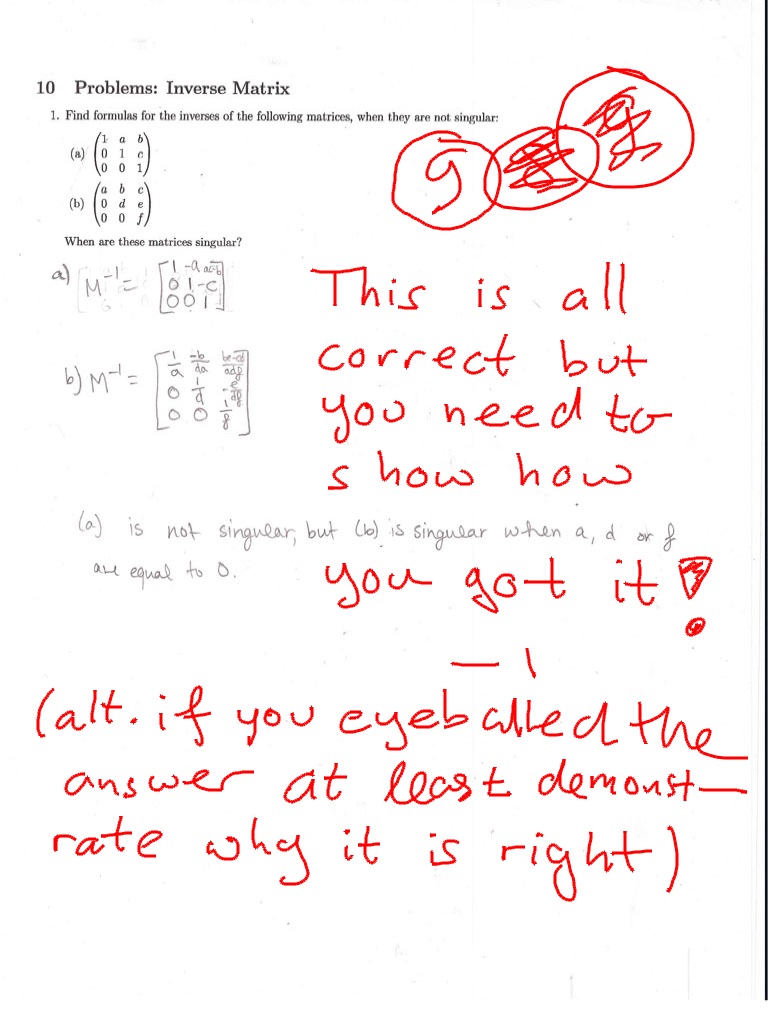 10 Problems: Inverse Matrix
1. Find formulas for the inverses of the following matrices, when they are not singular:
(a) (1 a b
0 1 c
0 0 1)
(b) (a b c
0 d e
0 0 f)
When are these matrices singular?
9
a) M⁻¹ = [1 -a ac-b
0 1 -c
0 0 1]
b) M⁻¹ = [1/a -b/da be-cd/adf
0 1/d -e/df
0 0 1/f]
This is all
correct but
you need to
show how
(a) is not singular, but (b) is singular when a, d or f
are equal to 0.
you got it!
-1
(alt. if you eyeballed the
answer at least demonst-
rate why it is right)